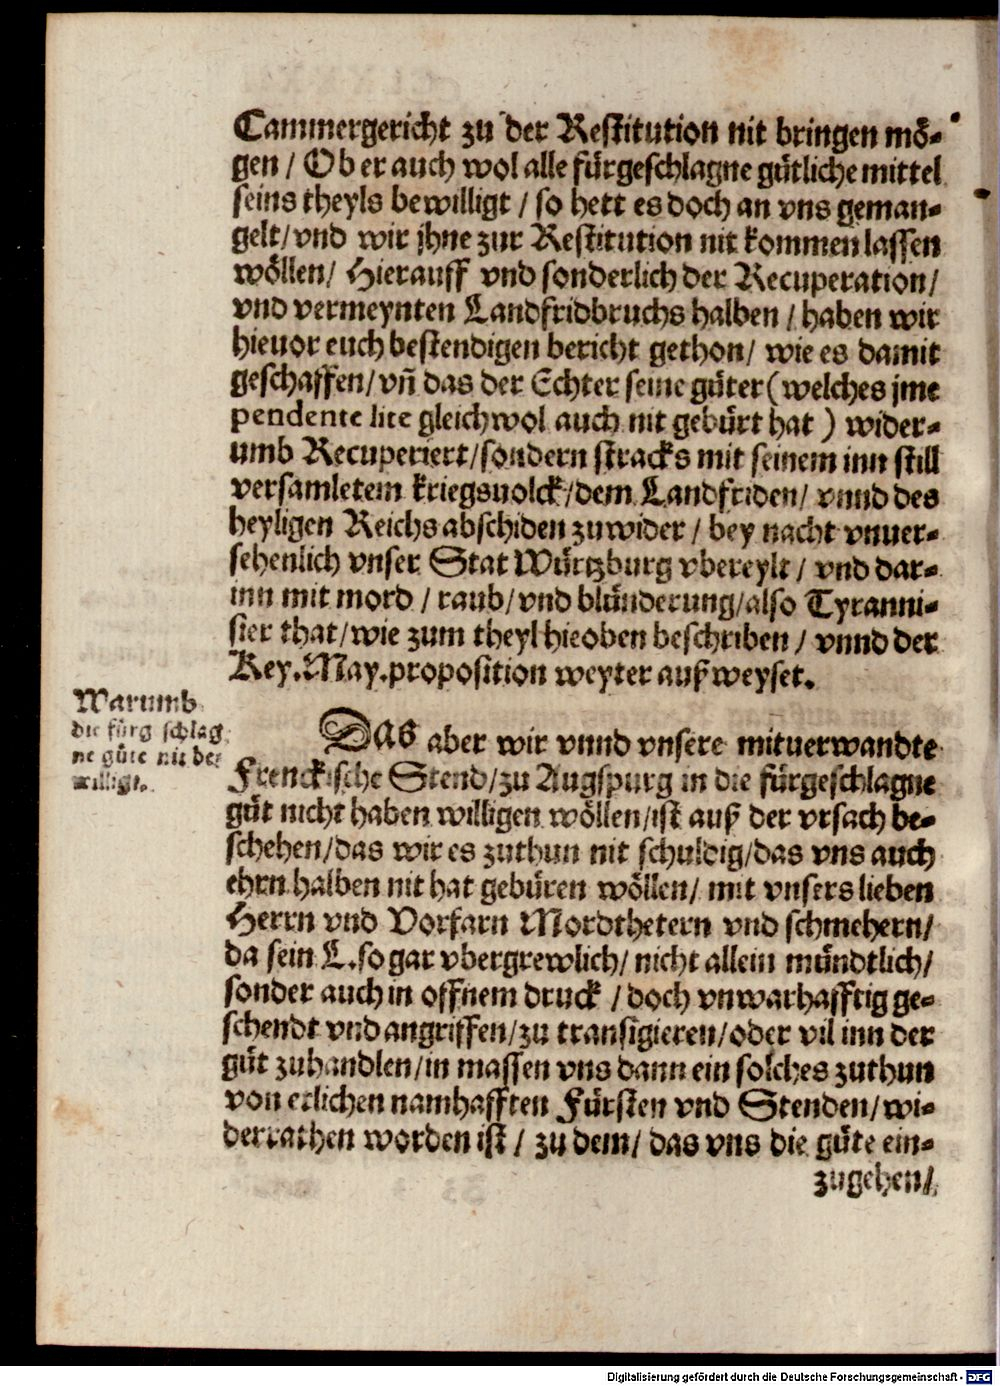 Cammergericht zu der Restitution nit bringen mö-
gen / Ob er auch wol alle fürgeschlagne gütliche mittel
seins theyls bewilligt / so hett es doch an vns geman-
gelt / vnd wir jhne zur Restitution nit kommen lassen
wöllen / Hierauff vnd sonderlich der Recuperation /
vnd vermeynten Landfridbruchs halben / haben wir
hieuor euch bestendigen bericht gethon / wie es damit
geschaffen / vñ das der Echter seine güter (welches jme
pendente lite gleichwol auch nit gebürt hat) wider-
umb Recuperiert / sondern stracks mit seinem inn still
versamletem kriegsuolck / dem Landfriden / vnnd des
heyligen Reichs abschiden zuwider / bey nacht vnuer-
sehenlich vnser Stat Würtzburg vbereylt / vnd dar-
inn mit mord / raub / vnd blünderung / also Tyranni-
sier that / wie zum theyl hieoben beschriben / vnnd der
Key. May. proposition weyter außweyset.
Warumb
die fürgschlag
ne güte nit be-
willigt.
Das aber wir vnnd vnsere mituerwandte
Frenckische Stend / zu Augspurg in die fürgeschlagne
güt nicht haben willigen wöllen / ist auß der vrsach be-
schehen / das wir es zuthun nit schuldig / das vns auch
ehrn halben nit hat gebüren wöllen / mit vnsers lieben
Herrn vnd Vorfarn Mordthetern vnd schmehern /
da sein L. so gar vbergrewlich / nicht allein mündtlich /
sonder auch in offnem druck / doch vnwarhafftig ge-
schendt vnd angriffen / zu transigieren / oder vil inn der
güt zuhandlen / in massen vns dann ein solches zuthun
von etlichen namhafften Fürsten vnd Stenden / wi-
derrathen worden ist / zu dem / das vns die güte ein-
zugehen /
Digitalisierung gefördert durch die Deutsche Forschungsgemeinschaft - DFG